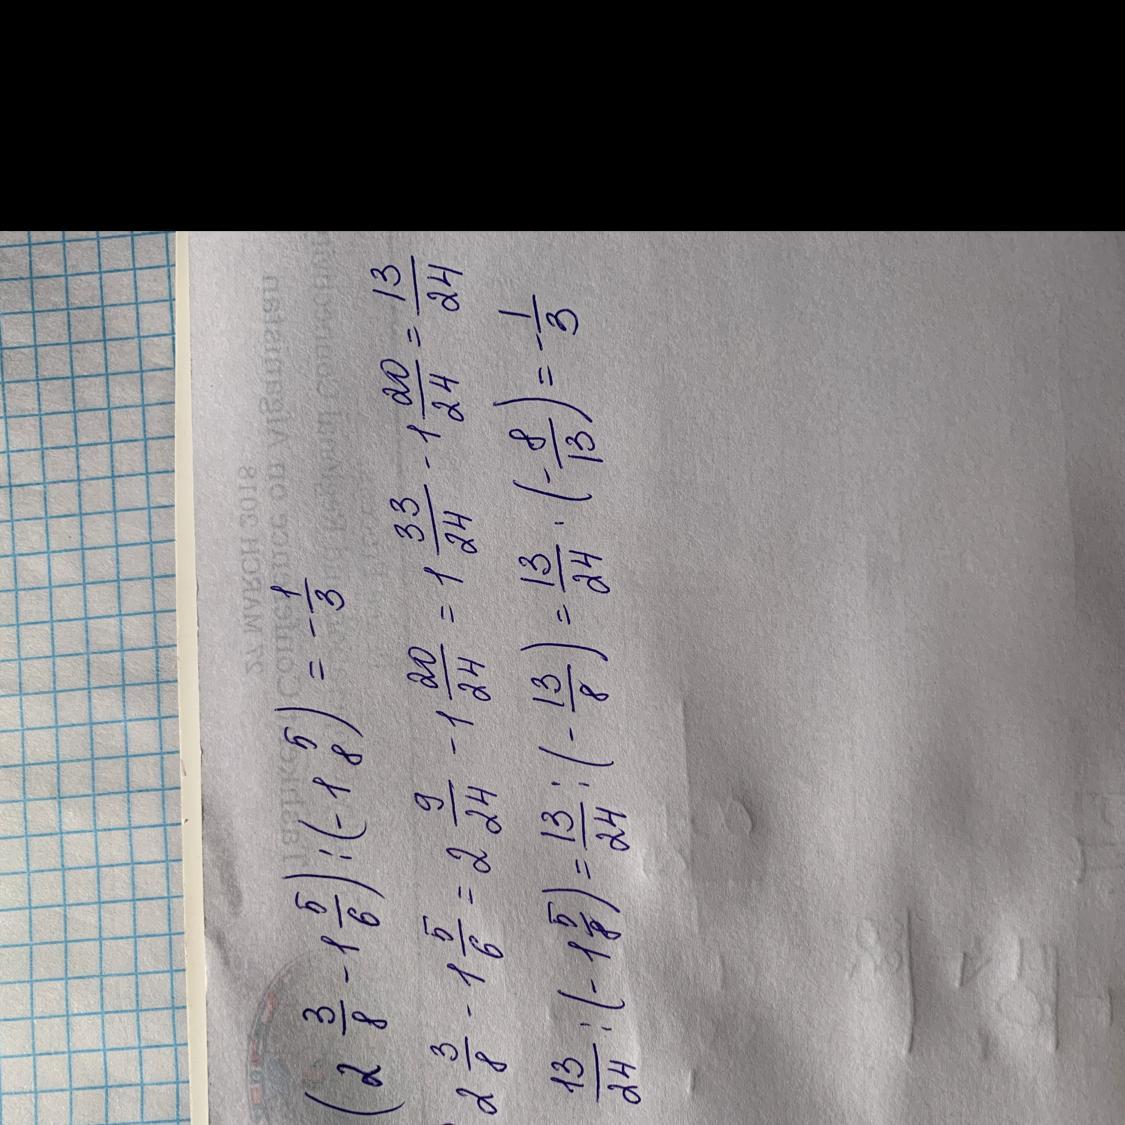 (2 3/8 - 1 5/6) : (-1 5/8) = -1/3
2 3/8 - 1 5/6 = 2 9/24 - 1 20/24 = 1 33/24 - 1 20/24 = 13/24
13/24 : (-1 5/8) = 13/24 : (-13/8) = 13/24 · (-8/13) = -1/3
27 MARCH 2018